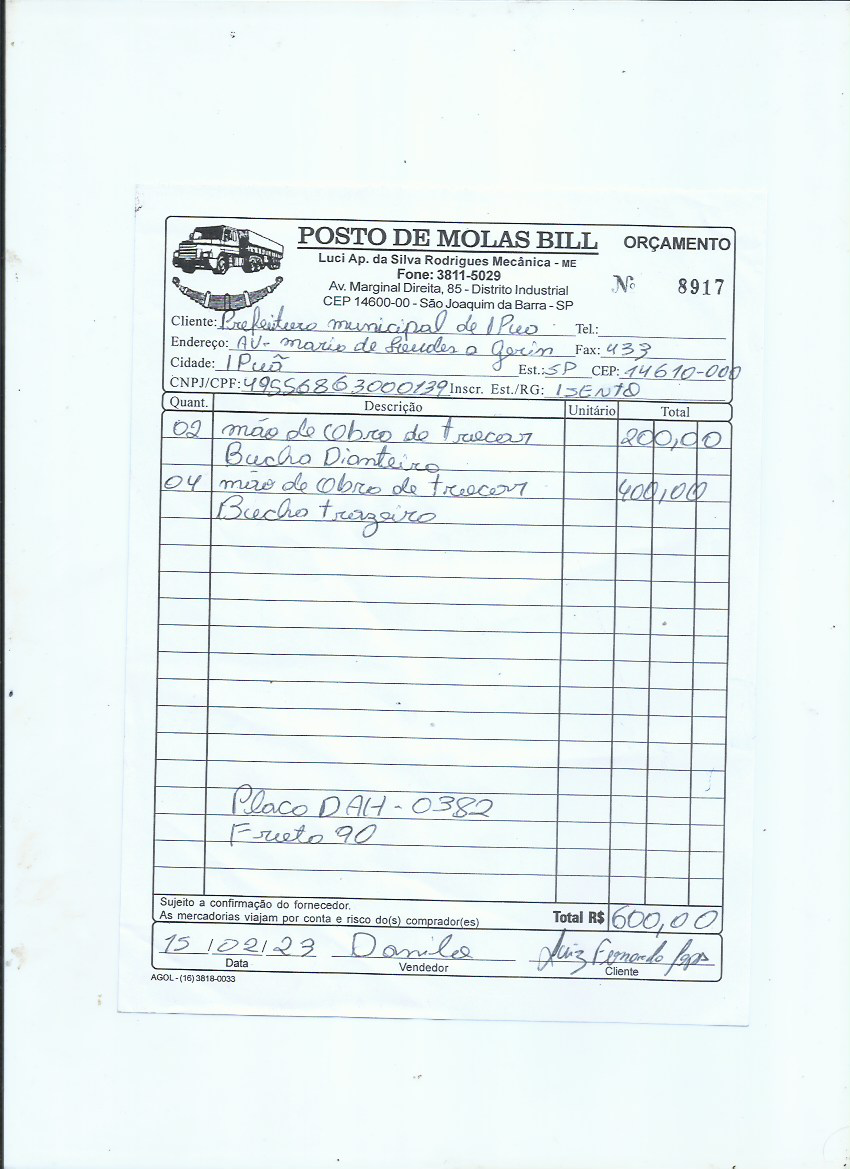 POSTO DE MOLAS BILL
ORÇAMENTO
Luci Ap. da Silva Rodrigues Mecânica - ME
Fone: 3811-5029
Av. Marginal Direita, 85 - Distrito Industrial
CEP 14600-00 - São Joaquim da Barra - SP
Nº 8917
Cliente: Prefeitura municipal de IPuã Tel.:
Endereço: AV- maria de a Fax: 433
Cidade: IPuã Est.: SP CEP: 14610-000
CNPJ/CPF: 49556863000139 Inscr. Est./RG: ISENTO
Quant. Descrição Unitário Total
02 mão de obra de truecar 200,00
Bucha Dianteira
04 mão de obra de truecar 400,00
Bucha trazeira
Placa DAH-0382
Frota 90
Sujeito a confirmação do fornecedor.
As mercadorias viajam por conta e risco do(s) comprador(es)
Total R$ 600,00
15/02/23 Danilo Luiz Fernando
Data Vendedor Cliente
AGOL - (16) 3818-0033